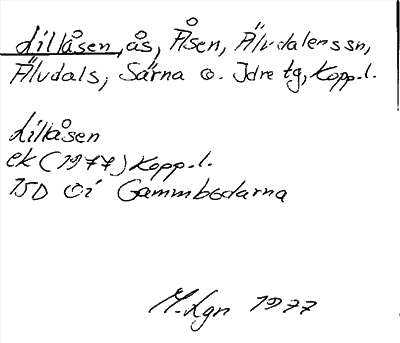 Lillåsen, ås, Åsen, Älvdalens sn,
Älvdals, Särna o. Idre tg, Kopp. l.
Lillåsen
ek (1977) Kopp. l.
15D Gammbodarna
M. Lgn 1977